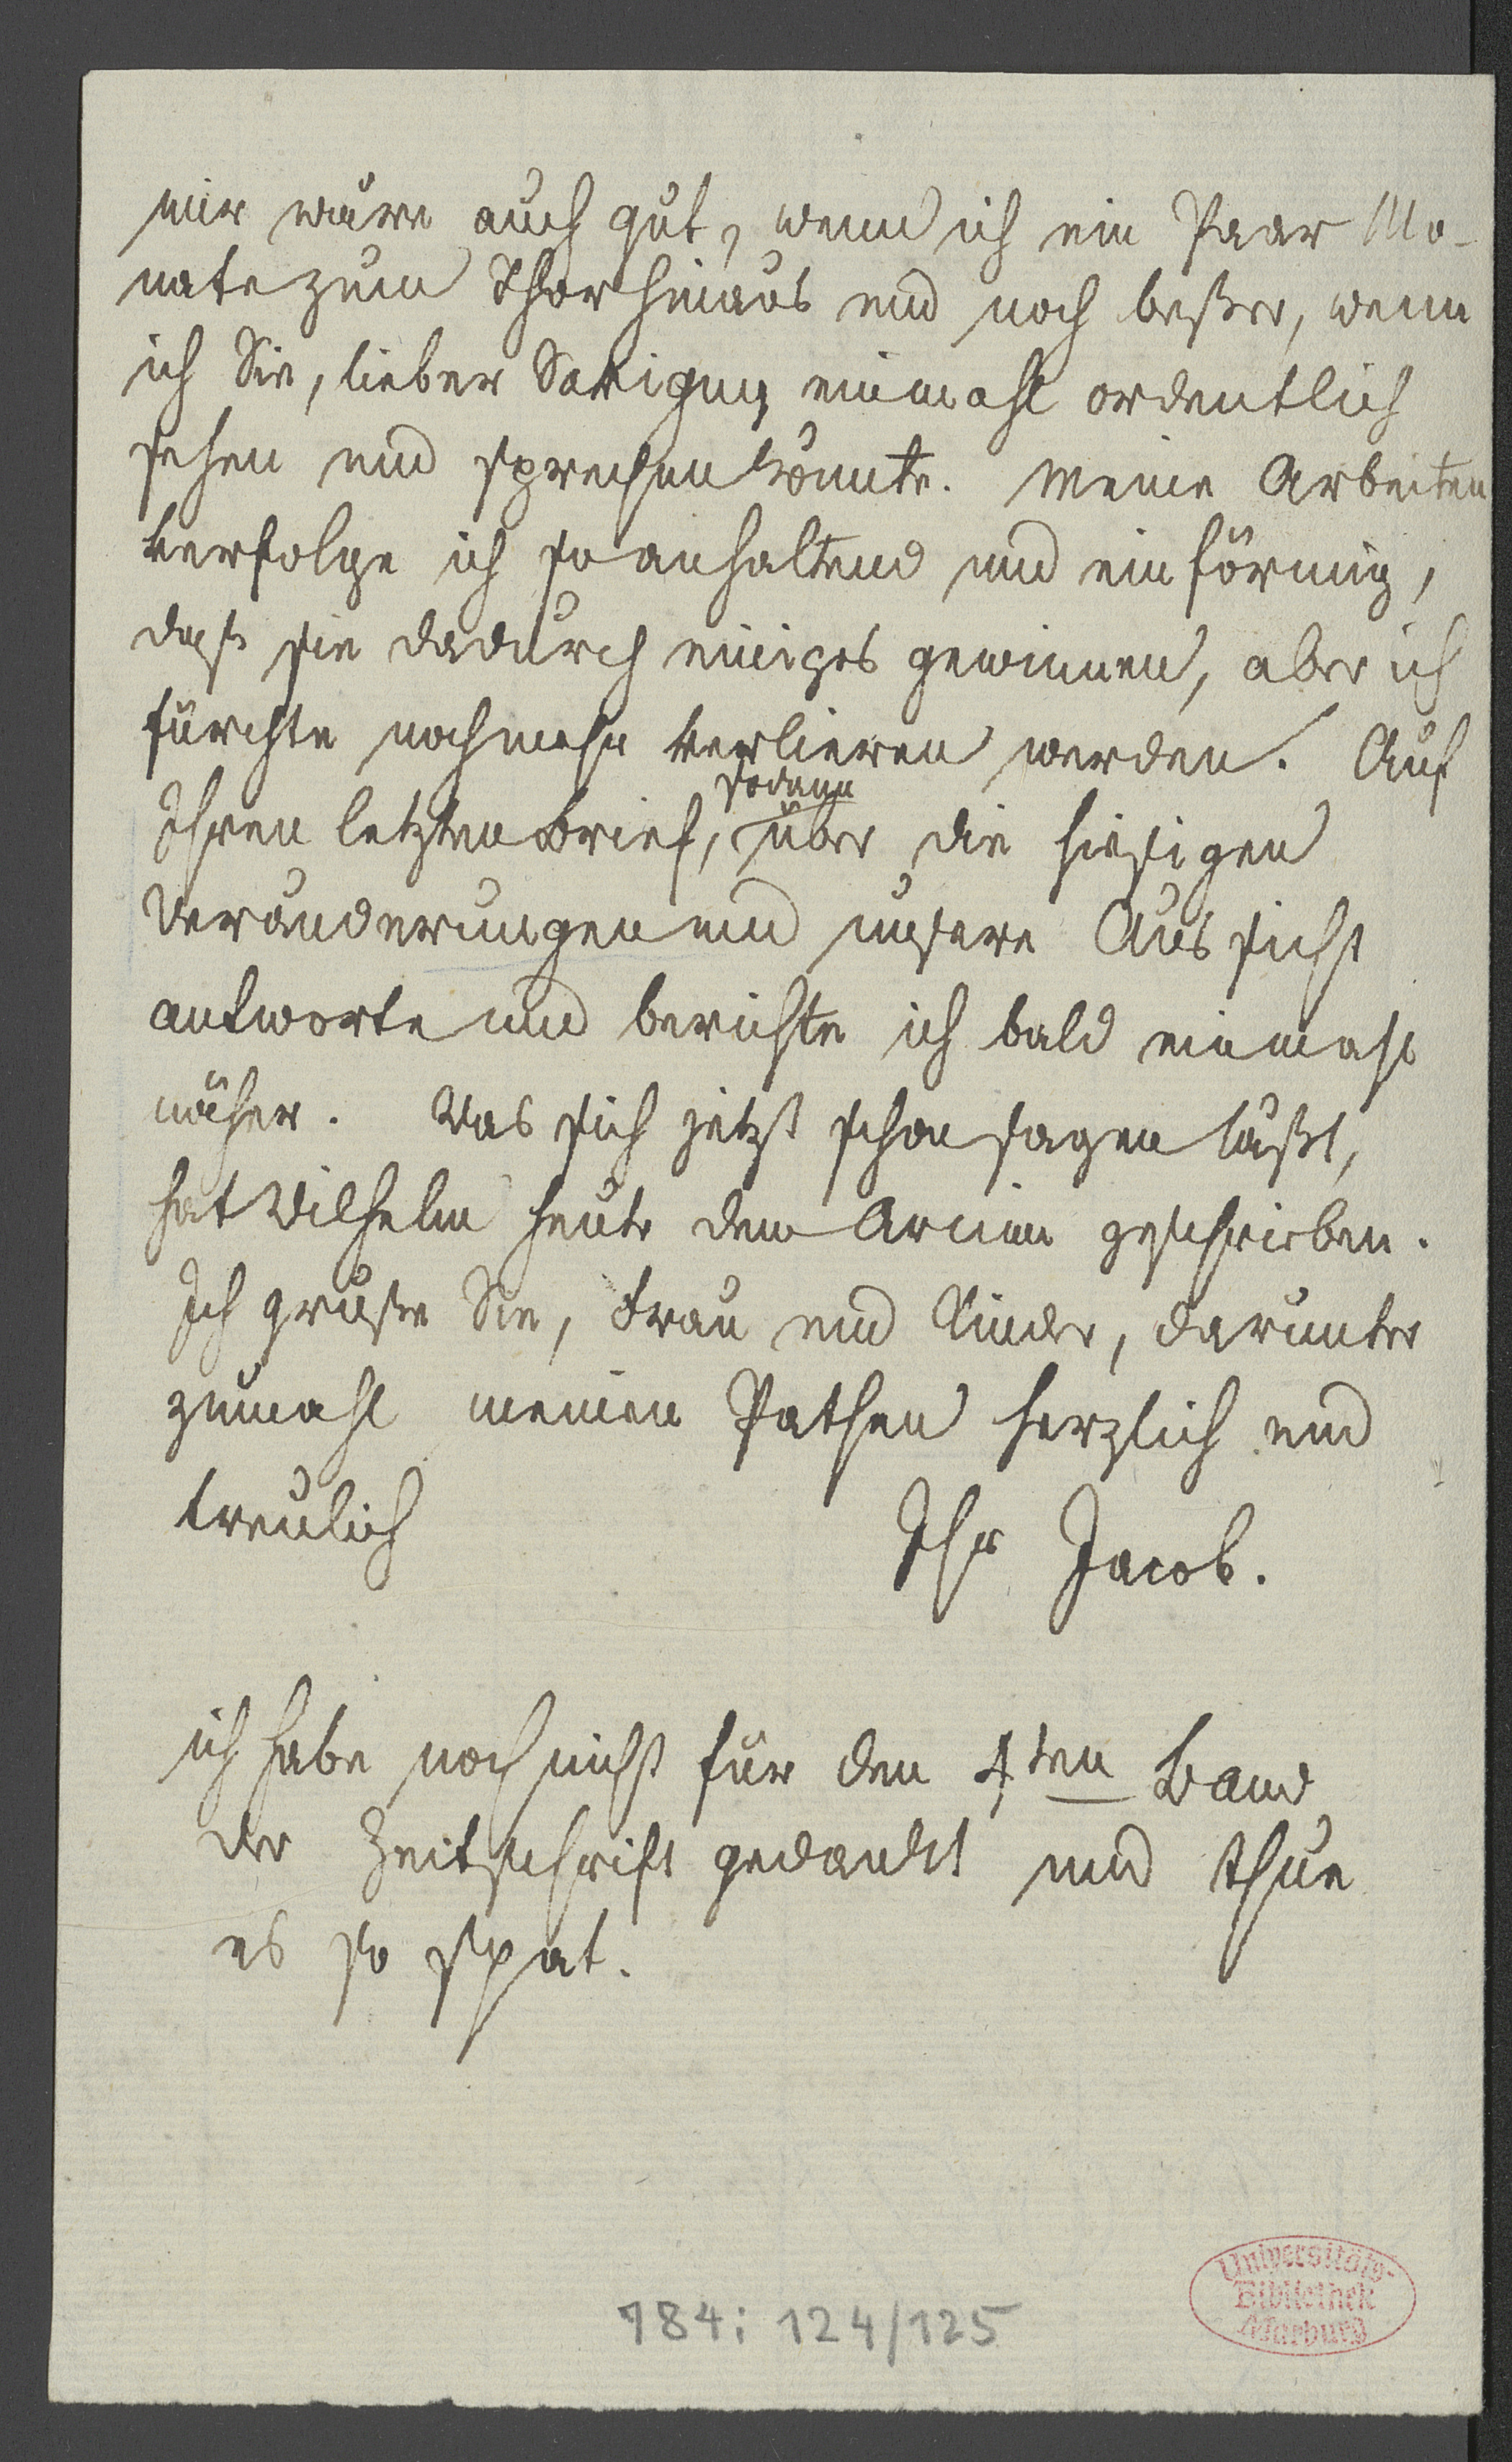 mir wäre auch gut, wenn ich ein Paar Mo-
nate zum Thor hinaus und noch beßer, wenn
ich Sie, lieber Savigny einmahl ordentlich
sehen und sprechen könnte. Meine Arbeiten
verfolge ich so anhaltend und einförmig,
daß sie dadurch einiges gewinnen, aber ich
fürchte noch mehr verlieren werden. Auf
sodann
Ihren letzten Brief, über die hiesigen
Veränderungen und unsere Aussicht
antworte und berichte ich bald einmahl
näher. Was sich jetzt schon sagen läßt,
hat Wilhelm heute dem Arnim geschrieben.
Ich grüße Sie, Frau und Kinder, darunter
zumahl meinen Pathen herzlich und
treulich
Ihr Jacob.
ich habe noch nicht für den 4ten Band
der Zeitschrift gedankt und thue
es so spat.
784: 124/125
Universitäts-
Bibliothek
Marburg